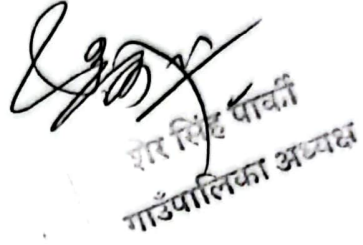 शेर सिंह पार्की
गाउँपालिका अध्यक्ष